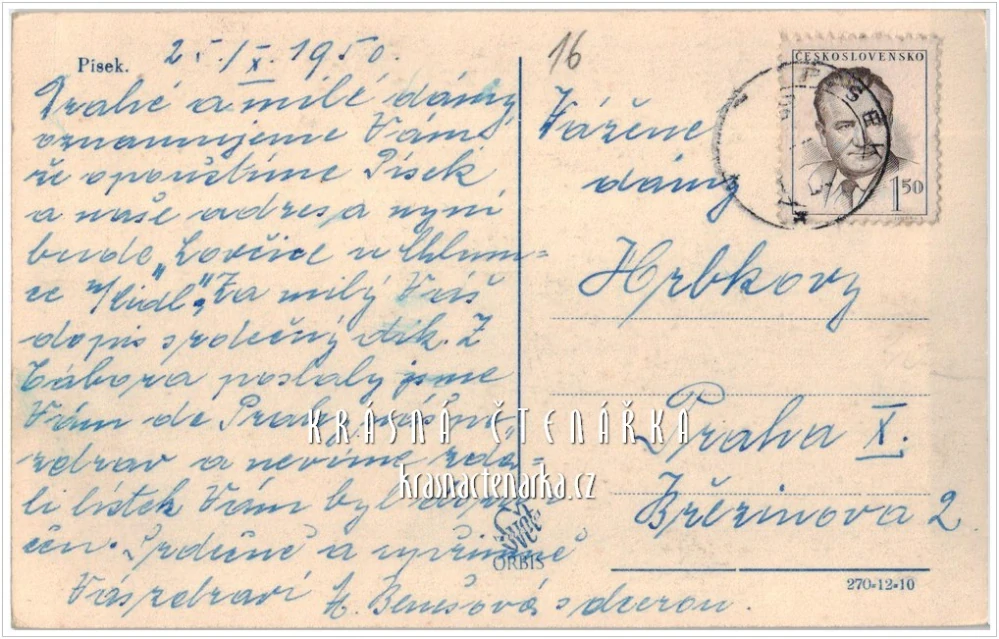 Písek. 25./IX. 1950.
Drahé a milé dámy
oznamujeme Vám,
že opouštíme Písek
a naše adresa nyní
bude „Lovčice u Chlum-
ce n/Cidl." Za milý Váš
dopis srdečný dík. Z
Tábora poslaly jsme
Vám do Prahy náš po-
zdrav a nevíme zda-
li lístek Vám byl doru-
čen. Srdečně a upřímně
Vás zdraví A. Benešová s dcerou.
16
ČESKOSLOVENSKO
1 50
PÍSEK
Vážené
dámy
Hrbkovy
Praha X.
Březinova 2.
KRÁSNÁ ČTENÁŘKA
krasnactenarka.cz
ORBIS
270-12-10